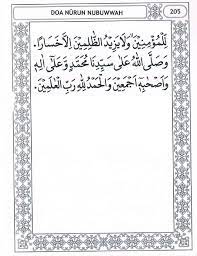 DOA NŪRUN NUBUWWAH 205
لِلْمُؤْمِنِيْنَ وَلَا يَزِيْدُ الظّٰلِمِيْنَ اِلَّا خَسَارًا.
وَصَلَّى اللهُ عَلَى سَيِّدِنَا مُحَمَّدٍ وَعَلَى اٰلِهِ
وَاَصْحَابِهِ اَجْمَعِيْنَ وَالْحَمْدُ لِلّٰهِ رَبِّ الْعٰلَمِيْنَ.